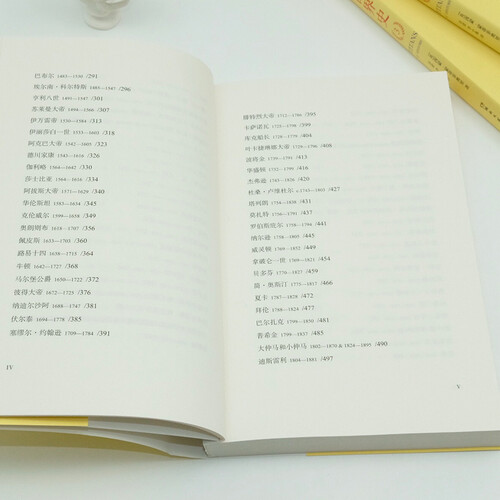 巴布尔 1483—1530 /291
埃尔南·科尔特斯 1485—1547 /296
亨利八世 1491—1547 /301
苏莱曼大帝 1494—1566 /307
伊万雷帝 1530—1584 /313
伊丽莎白一世 1533—1603 /318
阿克巴大帝 1542—1605 /323
德川家康 1543—1616 /326
伽利略 1564—1642 /330
莎士比亚 1564—1616 /334
阿拔斯大帝 1571—1629 /340
华伦斯坦 1583—1634 /345
克伦威尔 1599—1658 /349
奥朗则布 1618—1707 /356
佩皮斯 1633—1703 /360
路易十四 1638—1715 /364
牛顿 1642—1727 /368
马尔堡公爵 1650—1722 /372
彼得大帝 1672—1725 /376
纳迪尔沙阿 1688—1747 /381
伏尔泰 1694—1778 /385
塞缪尔·约翰逊 1709—1784 /391
IV
腓特烈大帝 1712—1786 /395
卡萨诺瓦 1725—1798 /399
库克船长 1728—1779 /404
叶卡捷琳娜大帝 1729—1796 /406
波将金 1739—1791 /413
华盛顿 1732—1799 /416
杰弗逊 1743—1826 /420
杜桑·卢维杜尔 c.1743—1803 /427
塔列朗 1754—1838 /431
莫扎特 1756—1791 /437
罗伯斯庇尔 1758—1794 /441
纳尔逊 1758—1805 /445
威灵顿 1769—1852 /449
拿破仑一世 1769—1821 /454
贝多芬 1770—1827 /459
简·奥斯汀 1775—1817 /466
夏卡 1787—1828 /472
拜伦 1788—1824 /477
巴尔扎克 1799—1850 /481
普希金 1799—1837 /485
大仲马和小仲马 1802—1870 & 1824—1895 /490
迪斯雷利 1804—1881 /497
V